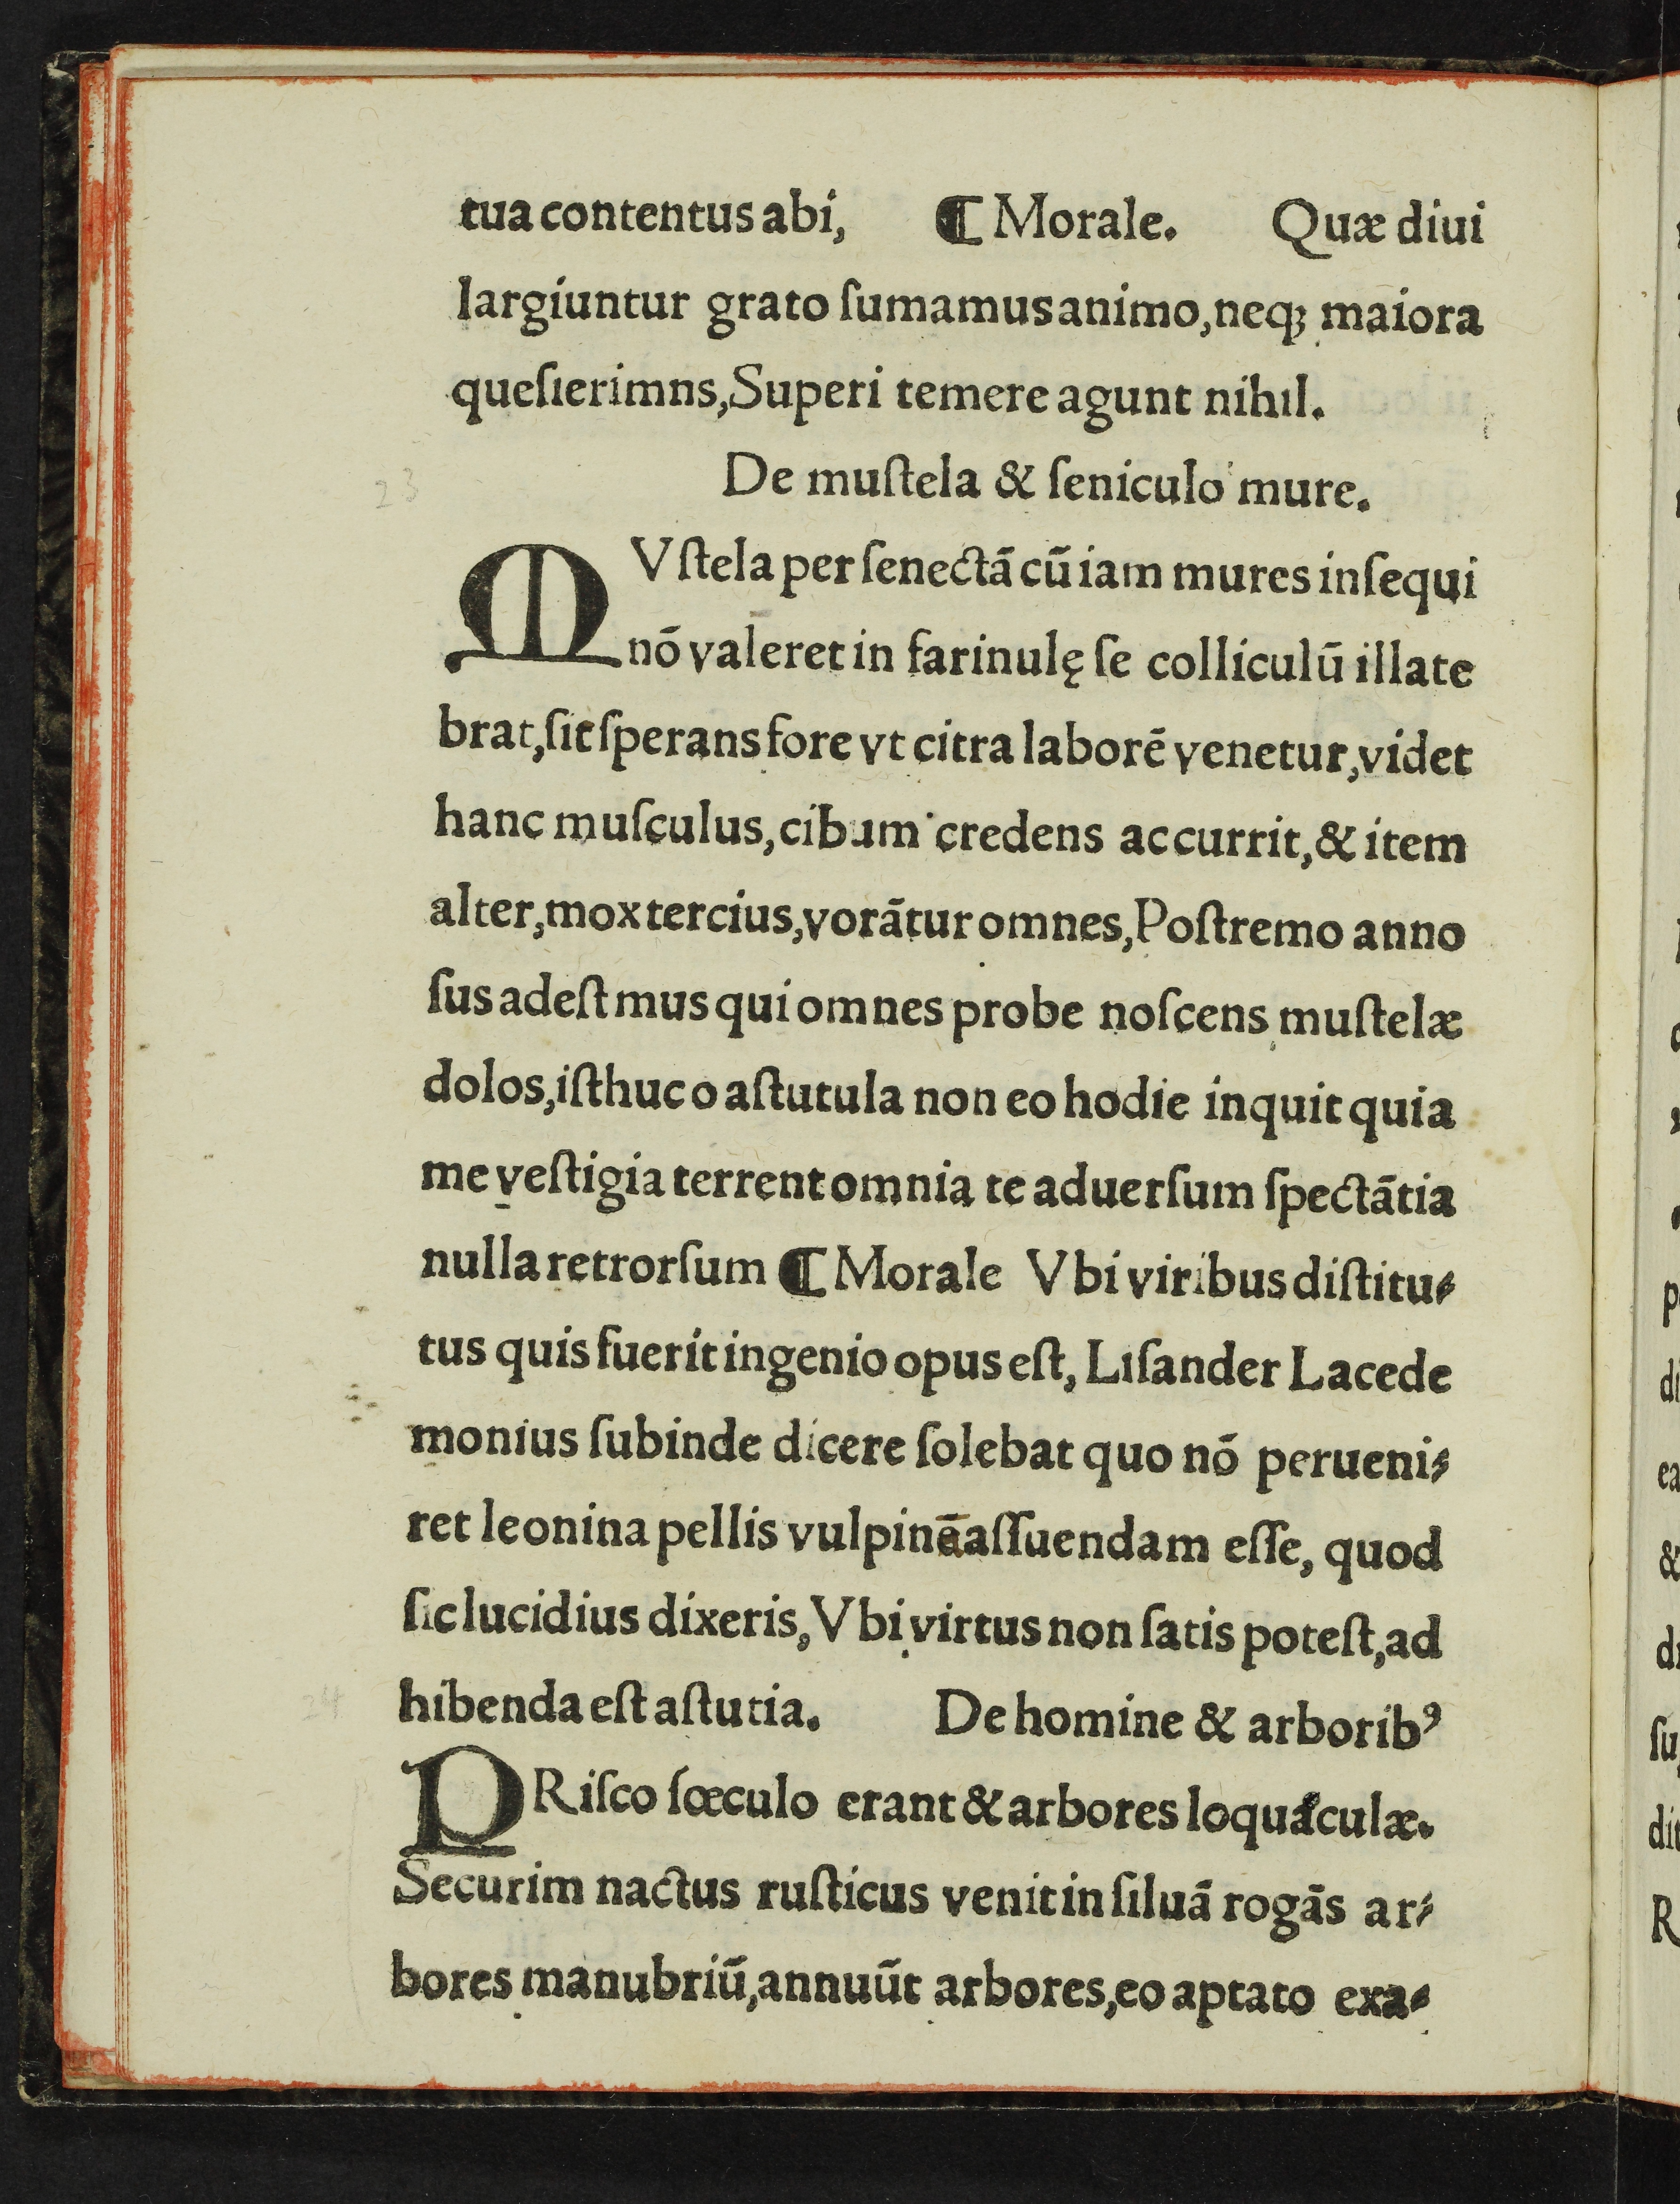 tua contentus abi, ¶ Morale. Quæ diui
largiuntur grato ſumamus animo, neqꝫ maiora
queſierimns, Superi temere agunt nihil.
23
De muſtela & ſeniculo mure.
MVſtela per ſenectā cū iam mures inſequi
nō valeret in farinulę ſe colliculū illate
brat, ſit ſperans fore vt citra laborē venetur, videt
hanc muſculus, cibum credens accurrit, & item
alter, mox tercius, vorātur omnes, Poſtremo anno
ſus adeſt mus qui omnes probe noſcens muſtelæ
dolos, iſthuc o aſtutula non eo hodie inquit quia
me veſtigia terrent omnia te aduerſum ſpectātia
nulla retrorſum ¶ Morale Vbi viribus diſtitu⸗
tus quis fuerit ingenio opus eſt, Liſander Lacede
monius ſubinde dicere ſolebat quo nō perueni⸗
ret leonina pellis vulpinā aſſuendam eſſe, quod
ſic lucidius dixeris, Vbi virtus non ſatis poteſt, ad
24
hibenda eſt aſtutia. De homine & arboribꝰ
PRiſco ſœculo erant & arbores loquaculæ.
Securim nactus ruſticus venit in ſiluā rogās ar⸗
bores manubriū, annuūt arbores, eo aptato exa⸗